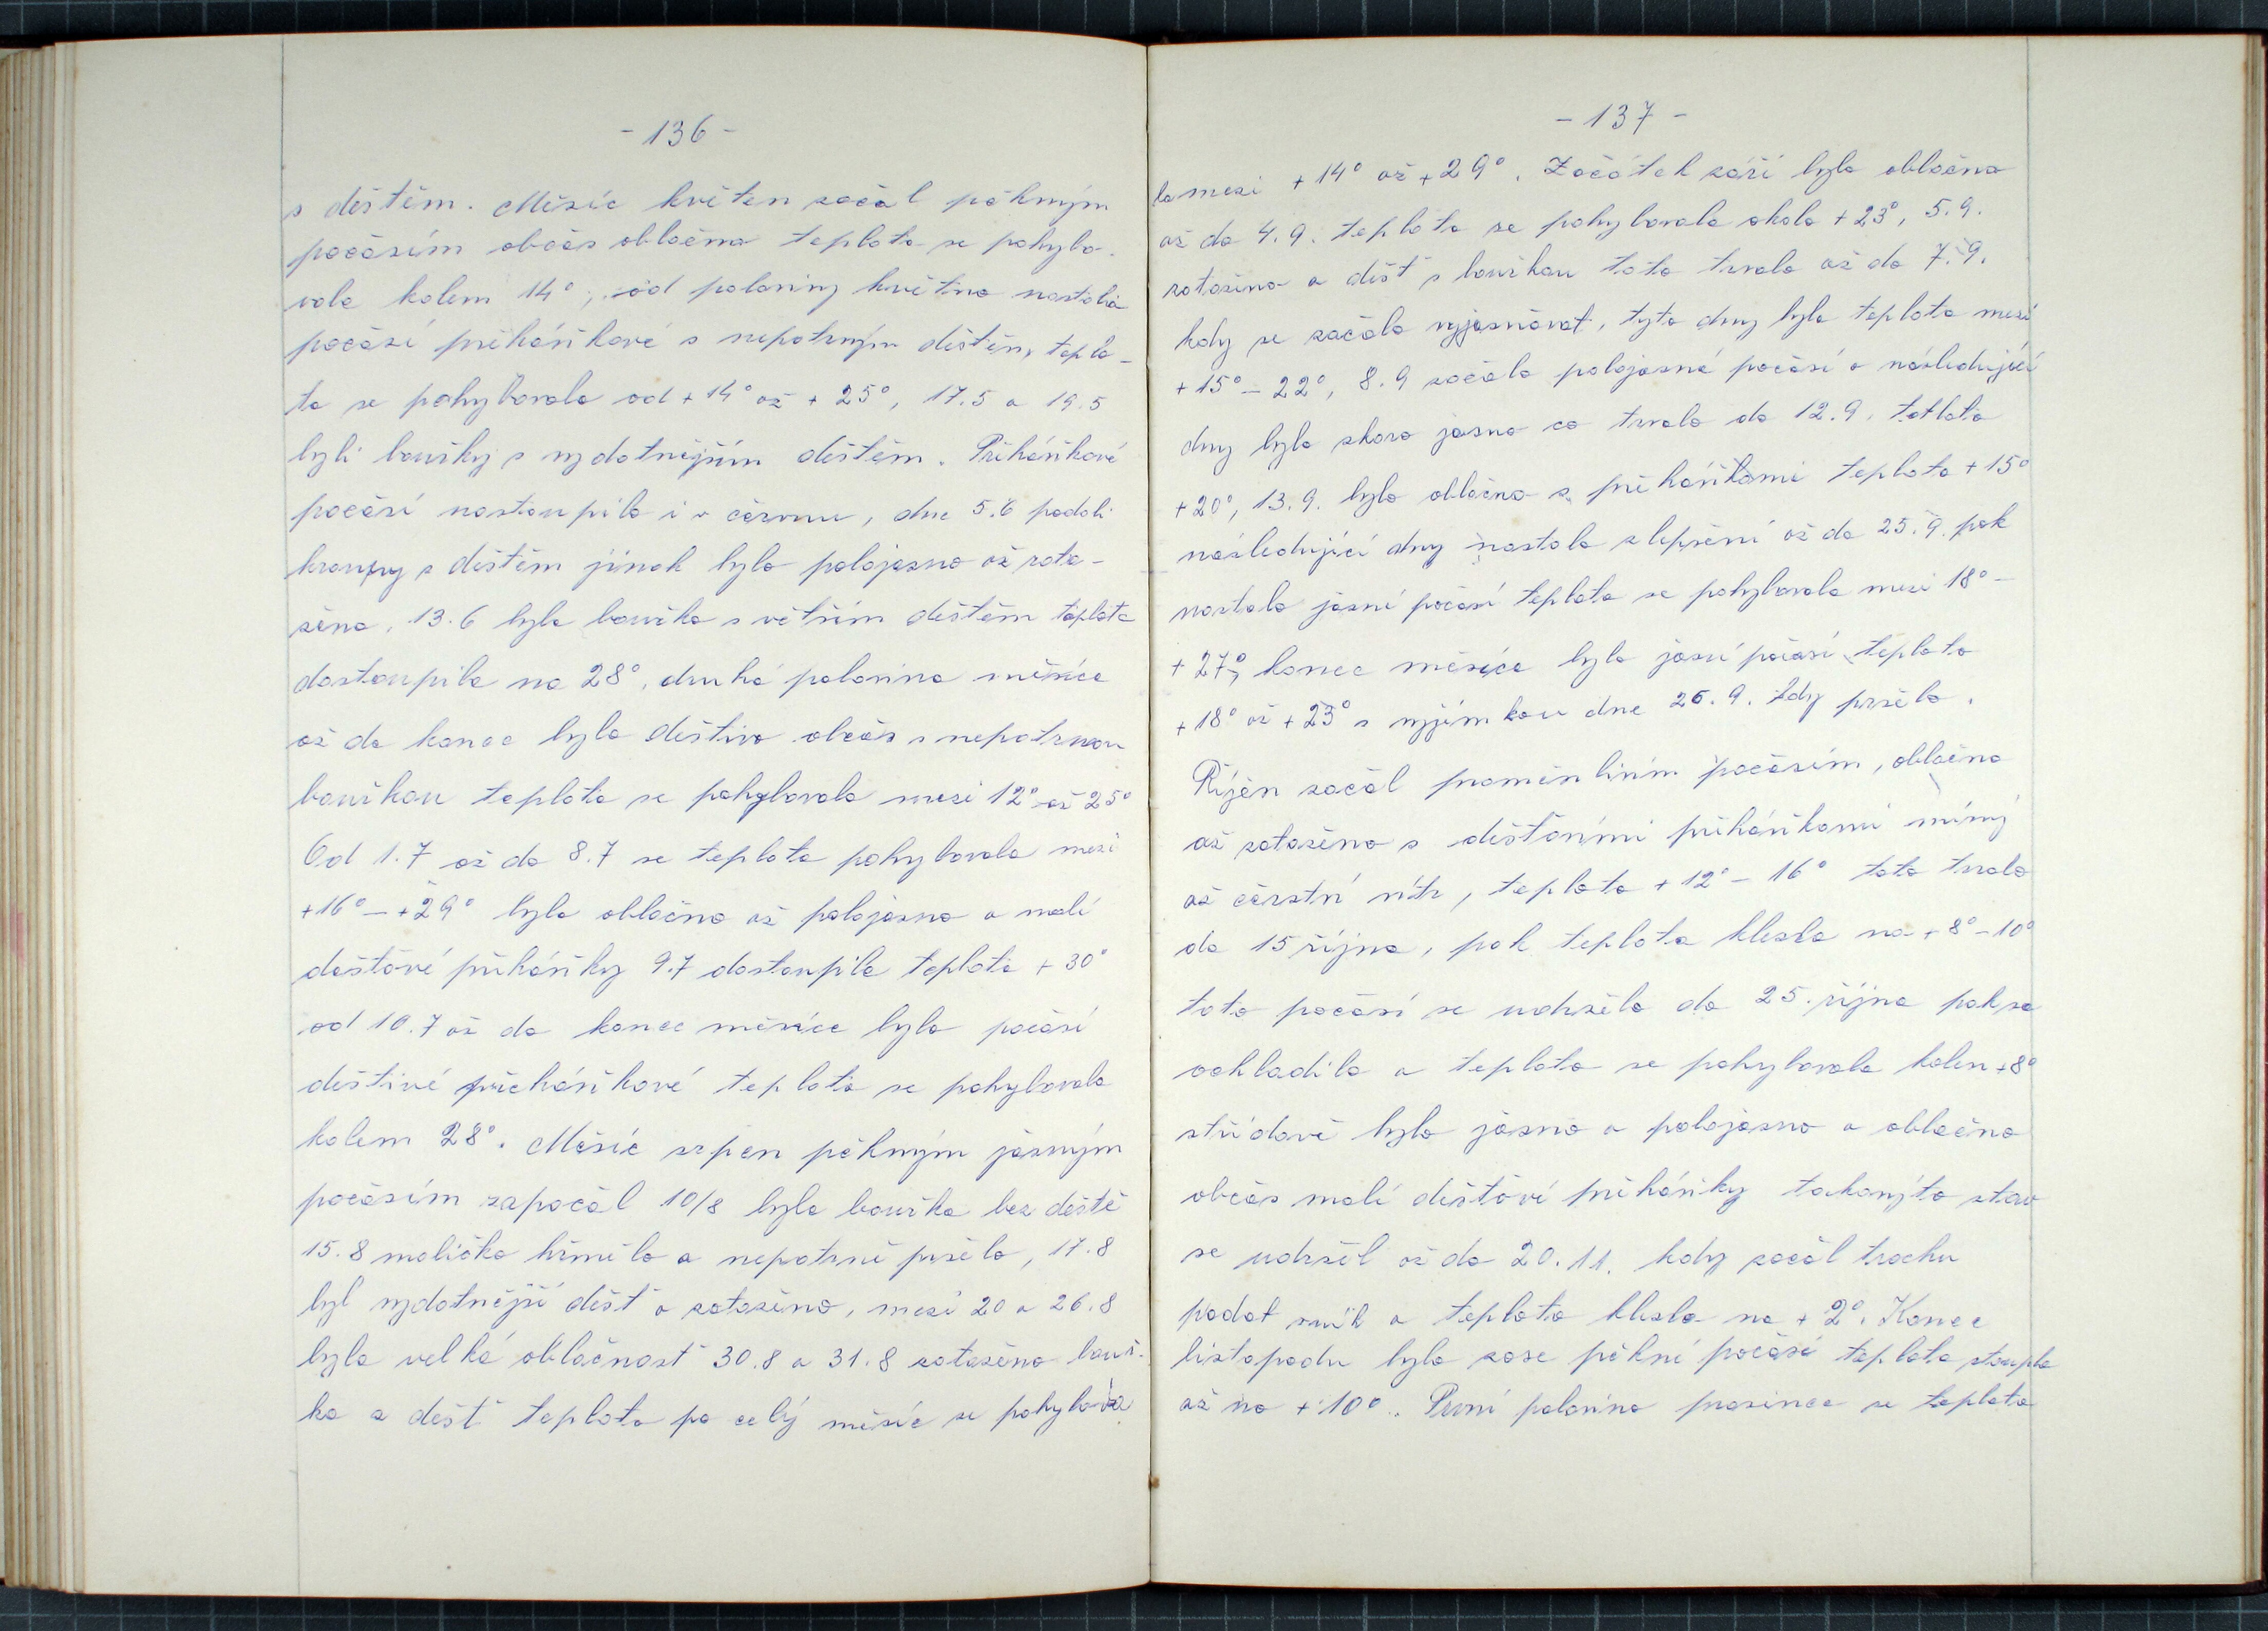 - 136 -
s deštěm. Měsíc květen začal pěkným
počásím občás oblačno teplota se pohybo-
vala kolem 14°, od poloviny května nastalo
počásí přeháňkové s nepatrným deštěm, teplo-
ta se pohybovala od + 14° až + 25°, 17.5 a 19.5
byli bouřky s vydatnějším deštěm. Přeháňkové
počásí nastoupilo i v červnu, dne 5.6 padali
kroupy s deštěm jinak bylo polojasno až zata-
ženo, 13.6 byla bouřka s větším deštěm teplota
dostoupila na 28°, druhá polovina měsíce
až do konce bylo deštivo občás s nepatrnou
bouřkou teplota se pohybovala mezi 12° až 25°
Od 1.7 až do 8.7 se teplota pohybovala mezi
+16° - +29° bylo oblačno až polojasno a malé
dešťové přeháňky 9.7 dostoupila teplota + 30°
od 10.7 až do konce měsíce bylo počásí
deštivé přeháňkové teplota se pohybovala
kolem 28°. Měsíc srpen pěkným jasným
počásím započal 10/8 byla bouřka bez deště
15.8 maličko hřmělo a nepatrně pršelo, 17.8
byl vydatnější déšť a zataženo, mezi 20 a 26.8
byla velká oblačnost 30.8 a 31.8 zataženo bouř-
ka a déšť teplota po celý měsíc se pohybova
- 137 -
la mezi + 14° až + 29°. Začátek září bylo oblačno
až do 4.9. teplota se pohybovala okolo + 23°, 5.9.
zataženo a déšť s bouřkou toto trvalo až do 7.9.
kdy se začalo vyjasňovat, tyto dny byla teplota mezi
+ 15° - 22°, 8.9 začalo polojasné počásí a následující
dny bylo skoro jasno co trvalo do 12.9. totlota
+20°, 13.9. bylo oblačno s přeháňkami teplota + 15°
následující dny nastalo zlepšení až do 25.9. pak
nastalo jasné počásí teplota se pohybovala mezi 18° -
+ 27°, konec měsíce bylo jasné počásí, teplota
+ 18° až + 23° s vyjímkou dne 26.9. kdy pršelo.
Říjen začal proměnlivím počásím, oblačno
až zataženo s dešťovími přeháňkami mírný
až čerstvý vítr, teplota + 12° - 16° toto trvalo
do 15 října, pak teplota klesla na + 8° - 10°
toto počásí se udrželo do 25. října pak se
ochladilo a teplota se pohybovala kolem +8°
střídavě bylo jasno a polojasno a oblačno
občás malé dešťové přeháňky takovýto stav
se udržel až do 20.11. kdy začal trochu
padat sníh a teplota klesla na + 2°. Konec
listopadu bylo zase pěkné počásí teplota stoupla
až na + 10°. První polovina prosince se teplota